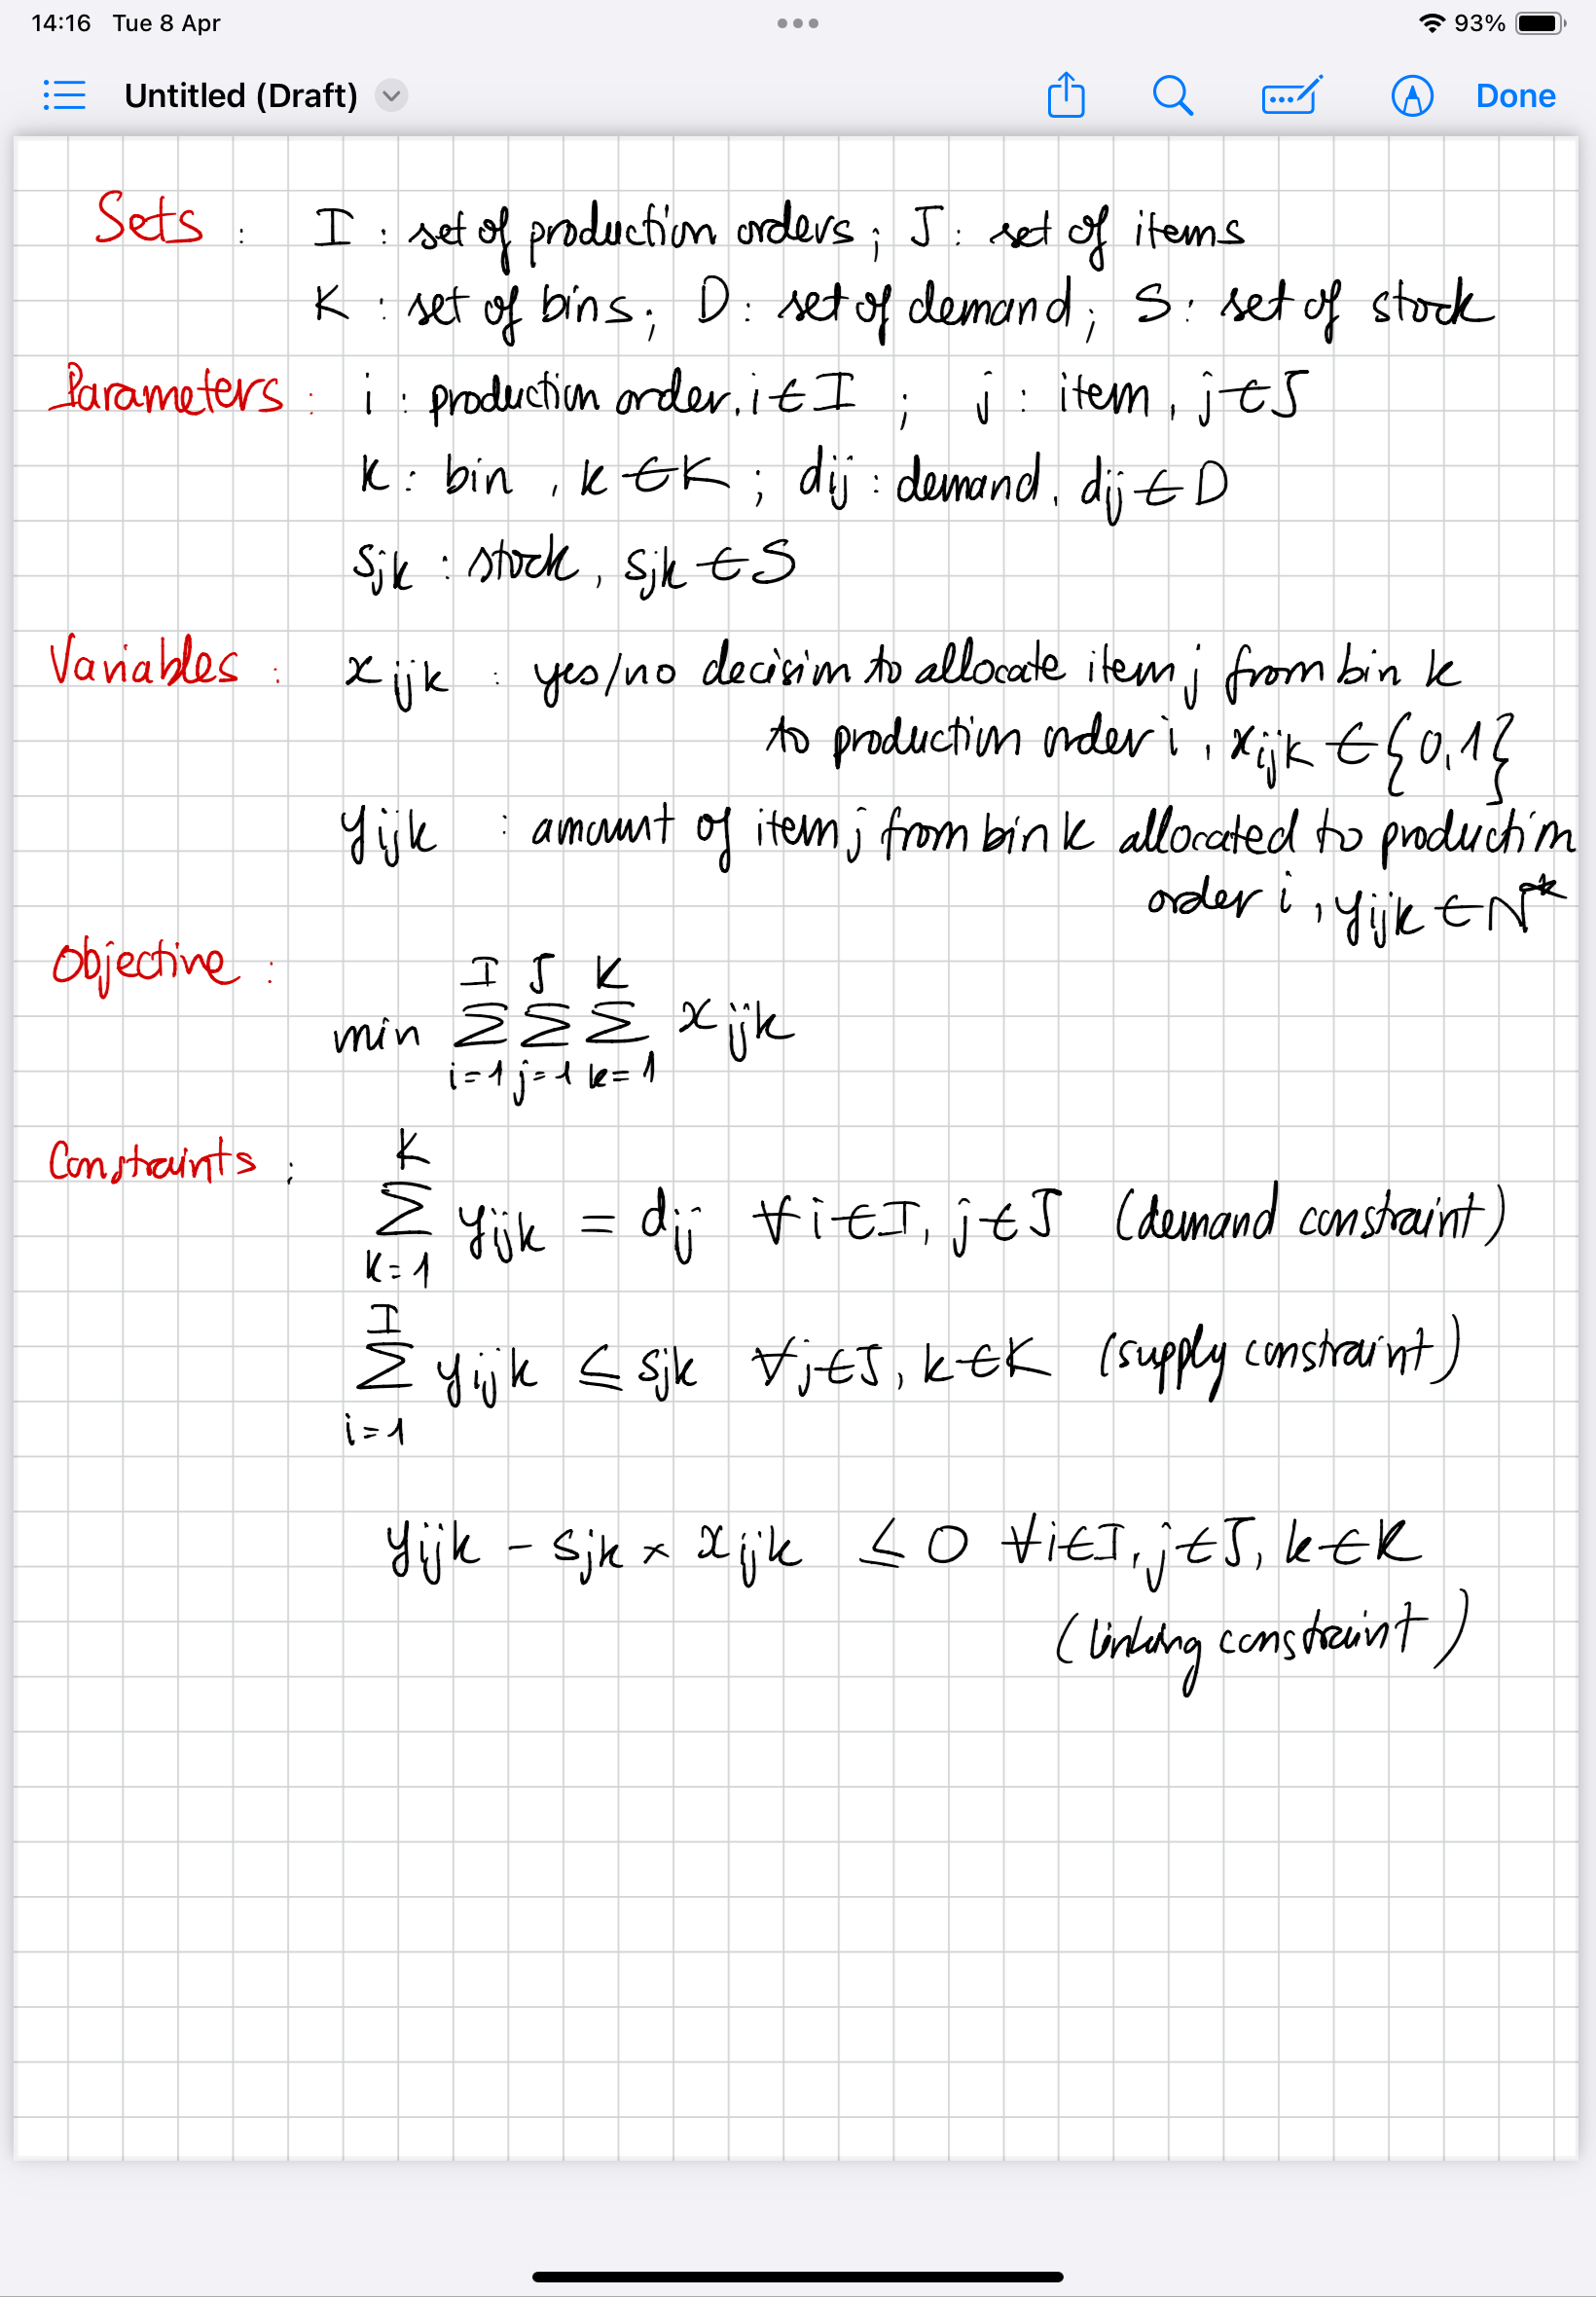 14:16 Tue 8 Apr 93%
Untitled (Draft) Done
Sets : I : set of production orders ; J : set of items
K : set of bins ; D : set of demand ; S : set of stock
Parameters : i : production order, i ∈ I ; j : item, j ∈ J
k : bin, k ∈ K ; dij : demand, dij ∈ D
sjk : stock, sjk ∈ S
Variables : xijk : yes/no decision to allocate item j from bin k
to production order i, xijk ∈ {0,1}
yijk : amount of item j from bin k allocated to production
order i, yijk ∈ N*
Objective :
I J K
min Σ Σ Σ xijk
i=1 j=1 k=1
Constraints :
K
Σ yijk = dij ∀ i ∈ I, j ∈ J (demand constraint)
k=1
I
Σ yijk ≤ sjk ∀ j ∈ J, k ∈ K (supply constraint)
i=1
yijk - sjk × xijk ≤ 0 ∀ i ∈ I, j ∈ J, k ∈ K
(linking constraint)